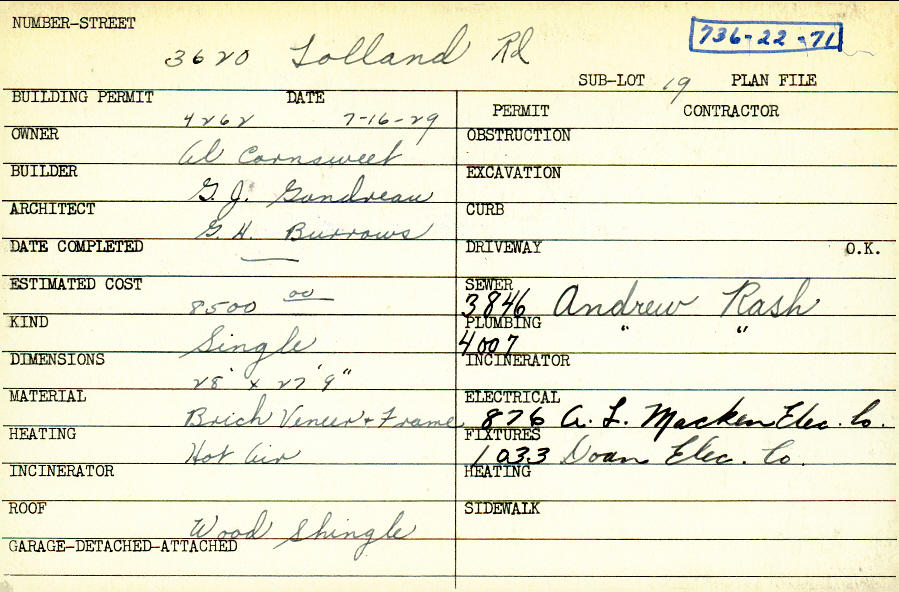 NUMBER-STREET
3620 Tolland Rd
736-22-71
SUB-LOT 19 PLAN FILE
BUILDING PERMIT DATE
4262 7-16-29
PERMIT CONTRACTOR
OWNER
Al Cornsweet
OBSTRUCTION
BUILDER
G. J. Gondreau
EXCAVATION
ARCHITECT
G. H. Burrows
CURB
DATE COMPLETED
—
DRIVEWAY O.K.
ESTIMATED COST
8500 00
SEWER
3846 Andrew Rash
KIND
Single
PLUMBING
4007 " "
DIMENSIONS
28' x 27' 9"
INCINERATOR
MATERIAL
Brick Veneer + Frame
ELECTRICAL
876 A. L. Macken Elec. Co.
HEATING
Hot Air
FIXTURES
1033 Doan Elec. Co.
INCINERATOR
HEATING
ROOF
Wood Shingle
SIDEWALK
GARAGE-DETACHED-ATTACHED